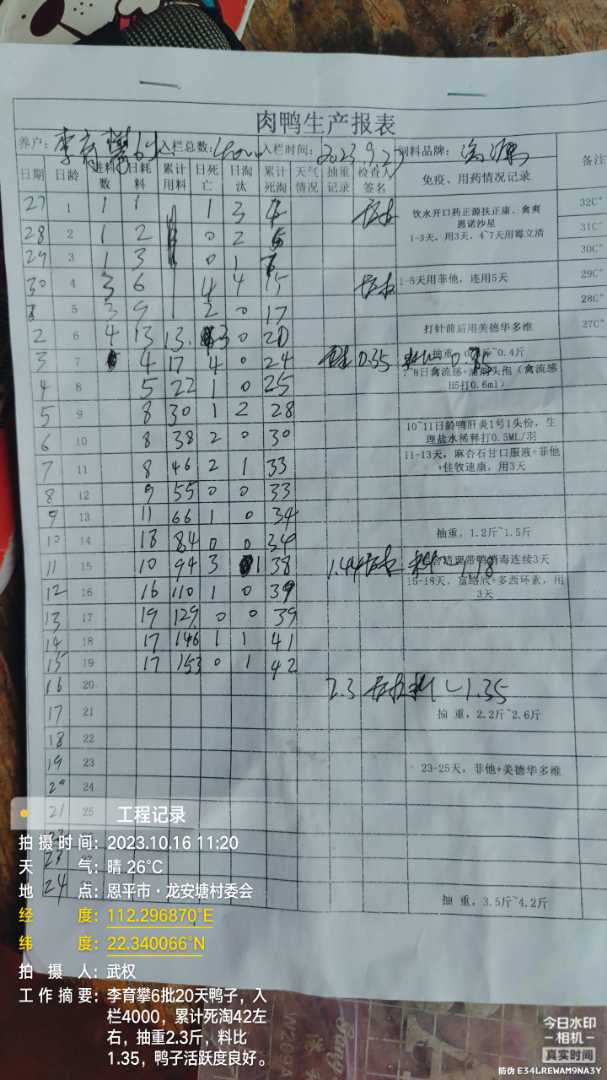 肉鸭生产报表
养户: 李育攀6批 入栏总数: 4000 入栏时间: 2023.9.27 饲料品牌:
日期 日龄 进料数 日耗料 累计用料 日死亡 日淘汰 累计死淘 天气情况 抽重记录 检查人签名 免疫、用药情况记录 备注
27 1 1 1 1 3 4 饮水开口药正源扶正康、禽爽 恩诺沙星 32C°
28 2 1 2 0 2 6 1-3天,用3天,4~7天用霉立清 31C°
29 3 1 3 0 1 7 30C°
30 4 3 6 4 4 15 1-5天用菲他,连用5天 29C°
5 3 9 2 0 17 28C°
2 6 4 13 13 3 0 20 打针前后用美德华多维 27C°
3 7 4 17 4 0 24 0.35 0.4斤
4 8 5 22 1 0 25 8日禽流感 (禽流感H5打0.6ml)
5 9 8 30 1 2 28
6 10 8 38 2 0 30 10~11日龄鸭肝炎1号1头份,生理盐水稀释打0.5ML/羽
7 11 8 46 2 1 33 11-13天,麻杏石甘口服液+菲他+佳牧速康,用3天
8 12 9 55 0 0 33
9 13 11 66 1 0 34
10 14 18 84 0 0 34 抽重,1.2斤~1.5斤
11 15 10 94 3 1 38 1.44 1.18 带鸭消毒连续3天
12 16 16 110 1 0 39 15-18天, 多西环素,用3天
13 17 19 129 0 0 39
14 18 17 146 1 1 41
15 19 17 153 0 1 42
16 20 2.3 1.35
17 21 抽重,2.2斤~2.6斤
18 22
19 23 23-25天,菲他+美德华多维
20 24
21 25
24 抽重,3.5斤~4.2斤
工程记录
拍摄时间: 2023.10.16 11:20
天气: 晴 26°C
地点: 恩平市·龙安塘村委会
经度: 112.296870°E
纬度: 22.340066°N
拍摄人: 武权
工作摘要: 李育攀6批20天鸭子,入
栏4000,累计死淘42左
右,抽重2.3斤,料比
1.35,鸭子活跃度良好。
今日水印
-相机-
真实时间
防伪 E34LREWAM9NA3Y